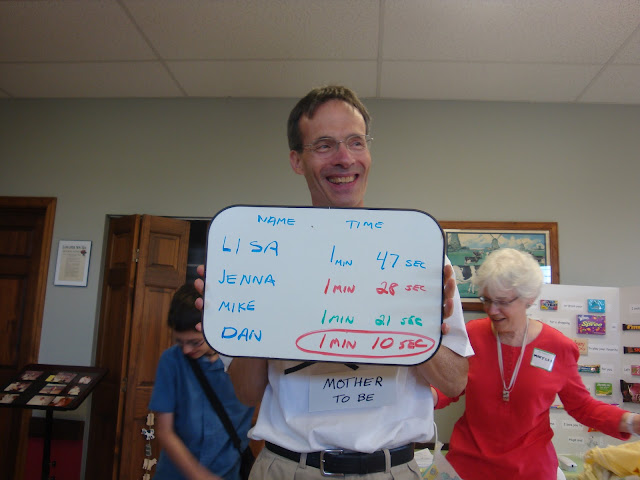 NAME TIME
LISA 1 MIN 47 SEC
JENNA 1 MIN 28 SEC
MIKE 1 MIN 21 SEC
DAN 1 MIN 10 SEC
MOTHER
TO BE